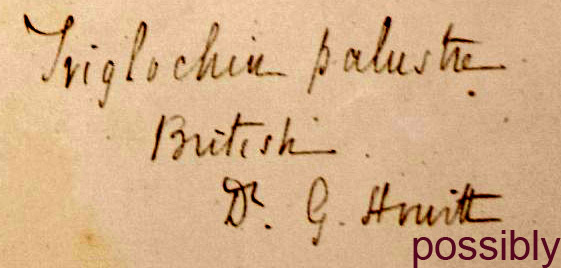 Triglochin palustre
British
Dr. G. Howitt
possibly